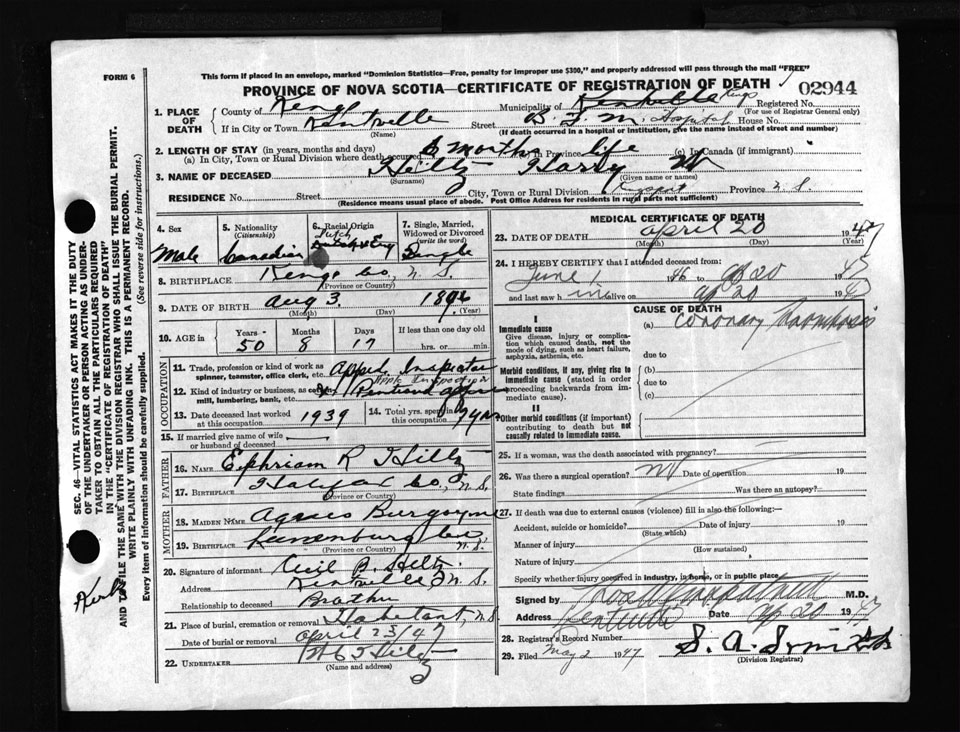 This form if placed in an envelope, marked "Dominion Statistics—Free, penalty for improper use $300," and properly addressed will pass through the mail "FREE"
FORM 6
PROVINCE OF NOVA SCOTIA—CERTIFICATE OF REGISTRATION OF DEATH
02944
1. PLACE OF DEATH
County of Kings
Municipality of Kentville Kings
Registered No.
(For use of Registrar General only)
If in City or Town Kentville
(Name)
Street B. F. M. Hospital House No.
(If death occurred in a hospital or institution, give the name instead of street and number)
2. LENGTH OF STAY (in years, months and days)
(a) In City, Town or Rural Division where death occurred 6 months
in Province life
(c) In Canada (if immigrant)
3. NAME OF DECEASED Hiltz Harry
(Surname) (Given name or names)
RESIDENCE No. Street
City, Town or Rural Division
Province N.S.
(Residence means usual place of abode. Post Office Address for residents in rural parts not sufficient)
4. Sex
Male
5. Nationality
(Citizenship)
Canadian
6. Racial Origin
Dutch
& Eng
7. Single, Married, Widowed or Divorced
(write the word)
Single
8. BIRTHPLACE Kings Co., N.S.
(Province or Country)
9. DATE OF BIRTH Aug 3 1896
(Month) (Day) (Year)
10. AGE in
Years 50
Months 8
Days 17
If less than one day old
hrs. or min.
OCCUPATION
11. Trade, profession or kind of work as spinner, teamster, office clerk, etc. Apple Inspector
12. Kind of industry or business, as mill, lumbering, bank, etc.
13. Date deceased last worked at this occupation 1939
14. Total yrs. spent
15. If married give name of wife or husband of deceased
FATHER
16. NAME Ephriam R Hiltz
17. BIRTHPLACE Halifax Co., N.S.
(Province or Country)
MOTHER
18. MAIDEN NAME Agnes Burgoyne
19. BIRTHPLACE Lunenburg Co., N.S.
(Province or Country)
20. Signature of informant Cecil B. Hiltz
Address Kentville N.S.
Relationship to deceased Brother
21. Place of burial, cremation or removal Habetant, N.S.
Date of burial or removal april 23/47
22. UNDERTAKER
(Name and address)
MEDICAL CERTIFICATE OF DEATH
23. DATE OF DEATH april 20 1947
(Month) (Day) (Year)
24. I HEREBY CERTIFY that I attended deceased from:
June 1 1946 to ap 20 1947
and last saw him alive on ap 20 1947
CAUSE OF DEATH
I
Immediate cause
Give disease, injury or complication which caused death, not the mode of dying, such as heart failure, asphyxia, asthenia, etc.
(a) coronary thrombosis
due to
Morbid conditions, if any, giving rise to immediate cause (stated in order proceeding backwards from immediate cause).
(b)
due to
(c)
II
Other morbid conditions (if important) contributing to death but not causally related to immediate cause.
25. If a woman, was the death associated with pregnancy?
26. Was there a surgical operation? no Date of operation 19
State findings Was there an autopsy?
27. If death was due to external causes (violence) fill in also the following:—
Accident, suicide or homicide? Date of injury 19
(State which)
Manner of injury
(How sustained)
Nature of injury
Specify whether injury occurred in industry, in home, or in public place
Signed by M.D.
Address Kentville Date ap 20 1947
28. Registrar's Record Number
29. Filed May 2 1947
S. A. Smith
(Division Registrar)
SEC. 46—VITAL STATISTICS ACT MAKES IT THE DUTY OF THE UNDERTAKER OR PERSON ACTING AS UNDERTAKER TO OBTAIN ALL THE PARTICULARS REQUIRED IN THE "CERTIFICATE OF REGISTRATION OF DEATH" AND TO FILE THE SAME WITH THE DIVISION REGISTRAR WHO SHALL ISSUE THE BURIAL PERMIT.
WRITE PLAINLY WITH UNFADING INK. THIS IS A PERMANENT RECORD.
Every item of information should be carefully supplied. (See reverse side for instructions.)